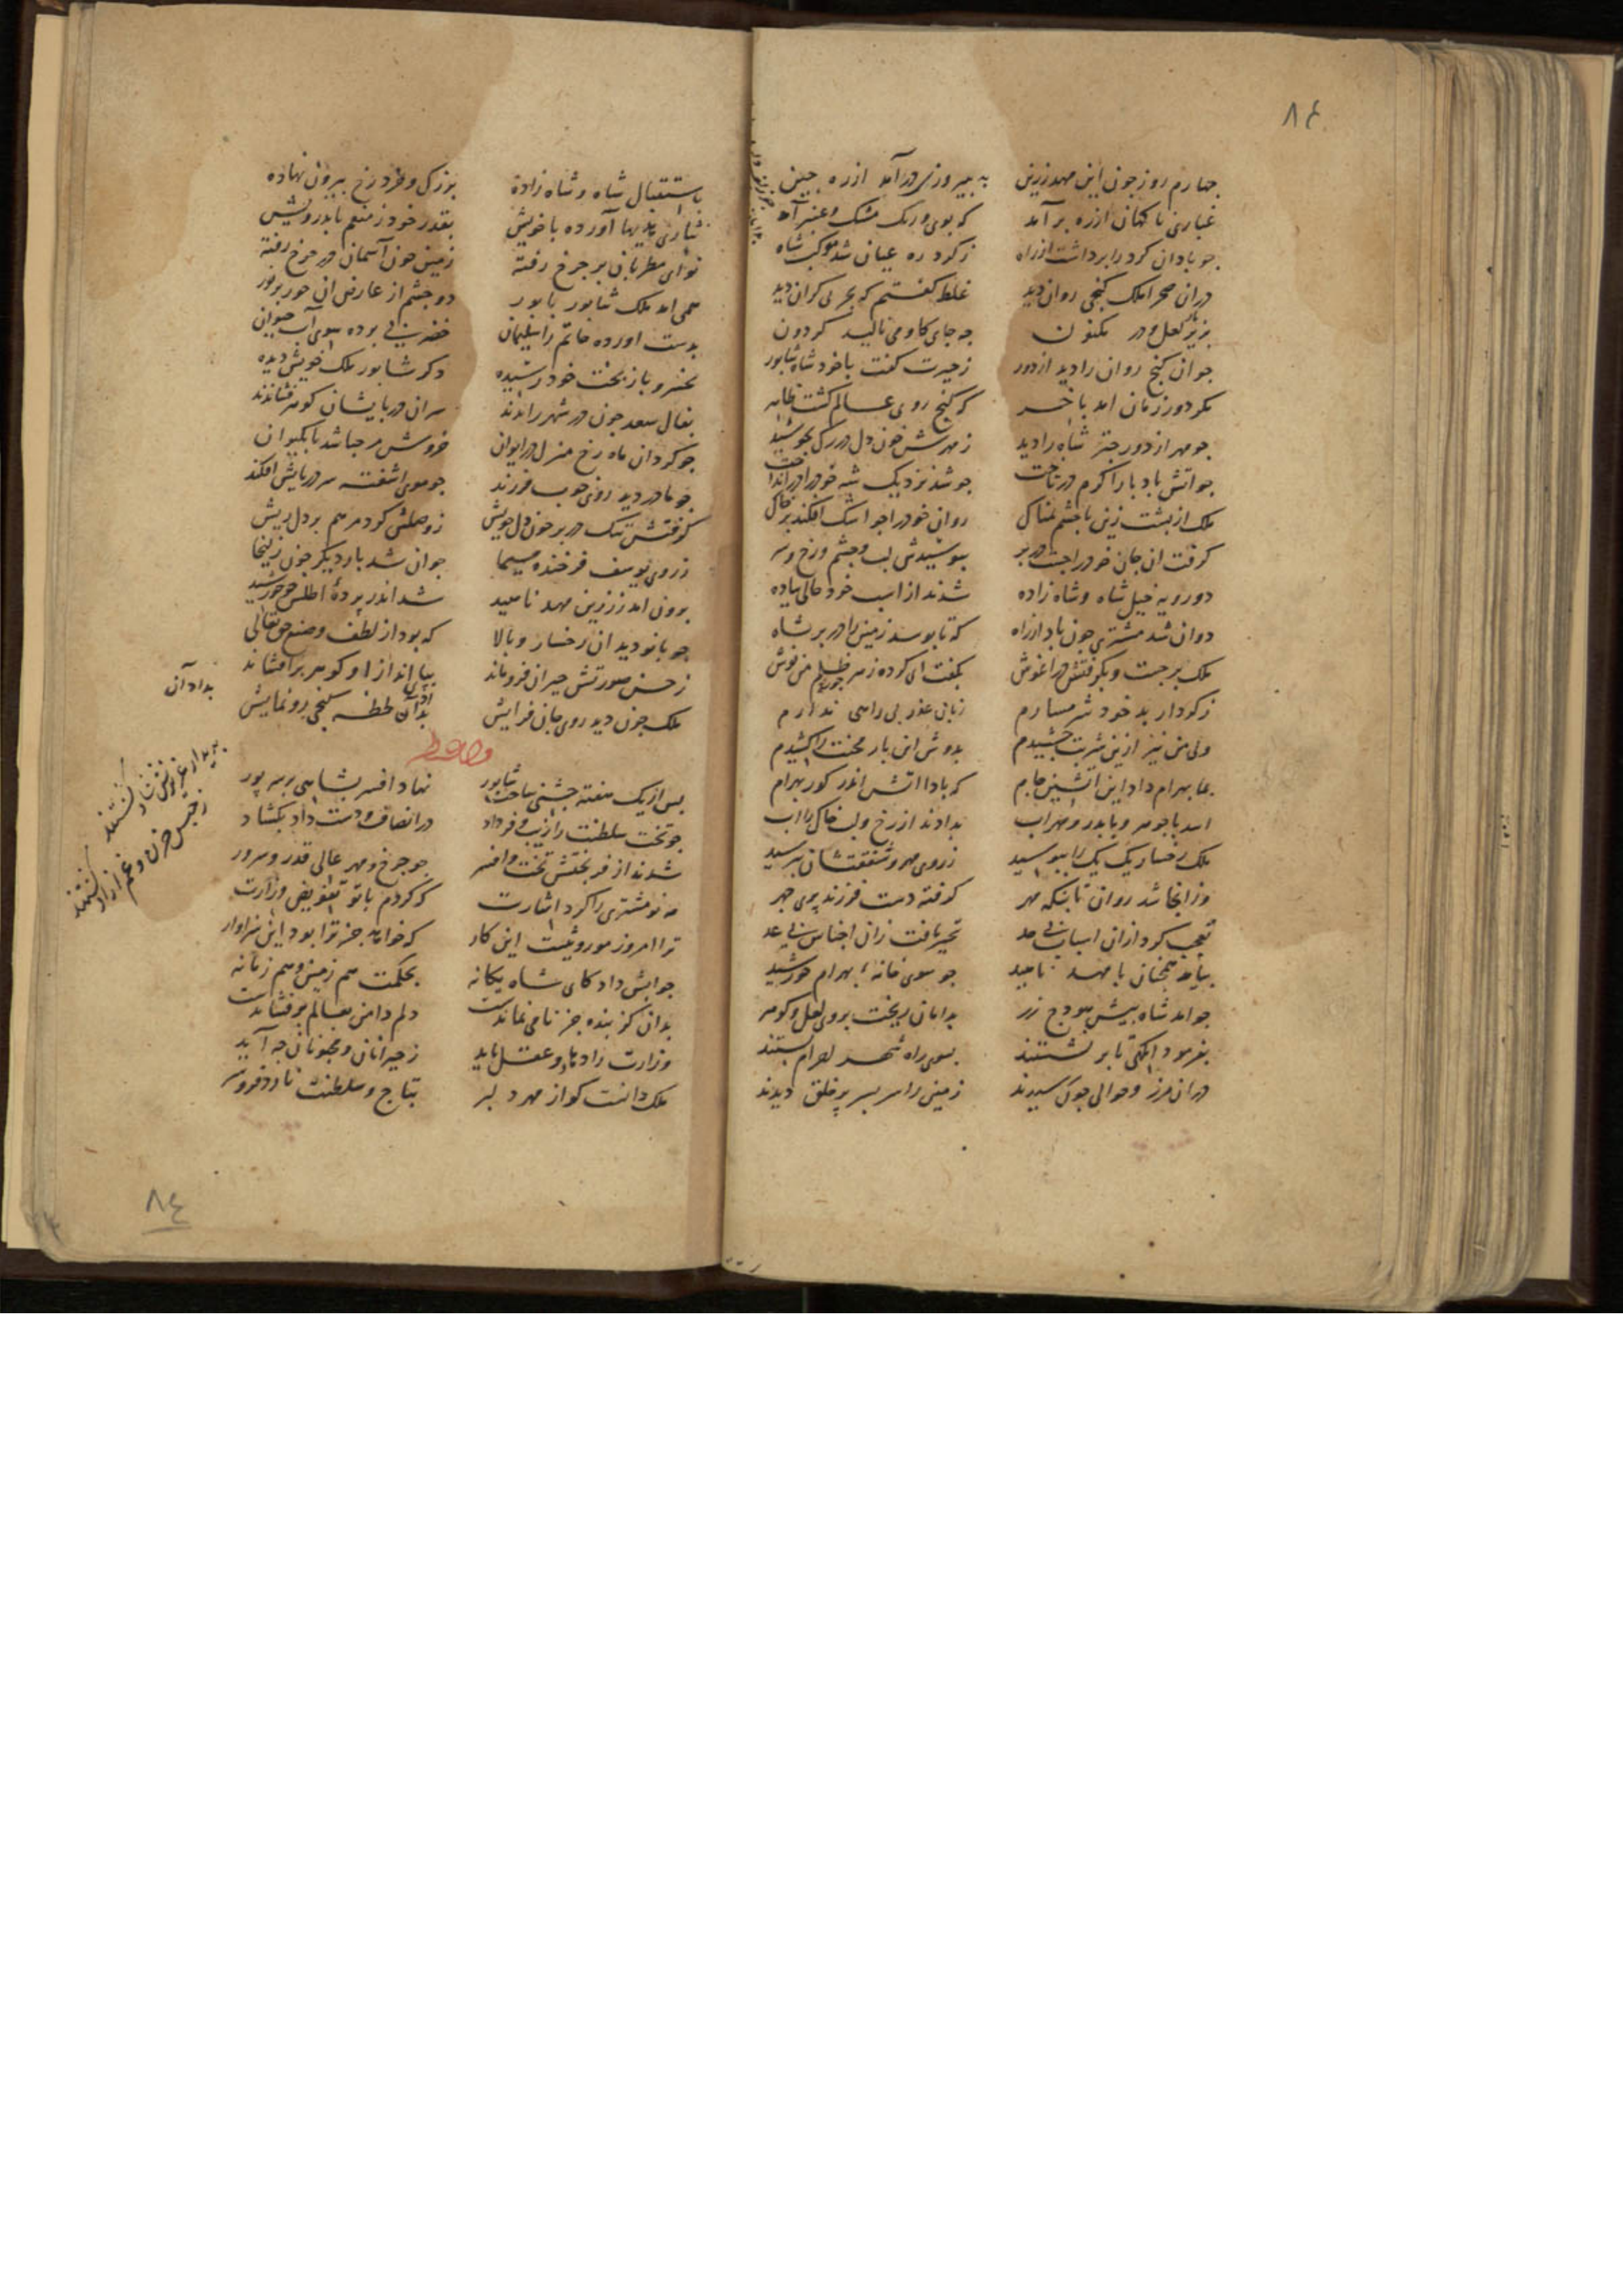 ٨٤
چهارم روز چون این مهد زرین به پیروزی درآمد از ره چین
غباری ناکهان از ره برآمد که بوی ورنک مشک وعنبر آمد
جو بادان کرد را برداشت از راه ز کرد ره عیان شد موکب شاه
دران صحرا ملک کنجی روان دید غلط کفتم که بحری کران دید
بزیر لعل ودر مکنون جه جای کاو می نالید کردون
جو ان کنج روان را دید از دور ز حیرت کفت با خود شاه شابور
مکر دور زمان امد باخر که کنج روی عالم کشت ظاهر
جو مهر از دور جتر شاه را دید ز مهرش خون دل در رک بجوشید
جو اتش باد پا را کرم در تاخت جو شد نزدیک شه خود را در انداخت
ملک از بشت زین با چشم نمناک روان خود را جو اشک افکند بر خاک
کرفت ان جان خود را جست در بر ببوسیدش لب وچشم ورخ وسر
دو رویه خیل شاه وشاه زاده شدند از اسب خود حالی پیاده
دوان شد مشتری چون باد از راه که تا بوسد زمین را در بر شاه
ملک برجست وبکرفتش در اغوش بکفت ای کرده زهر ظلم من نوش
ز کردار بد خود شرمسارم زبان عذر بی راهی ندارم
ولی من نیز ازین شربت چشیدم بدوش این بار محنت را کشیدم
بما بهرام داد این اتشین جام که بادا اتش اندر کور بهرام
اسد با جوهر وبا بدر ومهراب بدادند از رخ ولب خاک را اب
ملک رخسار یک یک را ببوسید ز روی مهر وشفقتشان بپرسید
وز انجا شد روان تا بنکه مهر کرفته دست فرزند پری چهر
تعجب کرد ازان اسباب بی حد تحیر یافت زان اجناس بی عد
بیامد همجنان با مهد ناهید جو سوی خانهٔ بهرام خورشید
جو امد شاه پیش هودج زر بدامان ریخت بروی لعل وکوهر
بفرمود انکهی تا بر نشستند بسوی راه شهر احرام بستند
دران مرز وحوالی چون رسیدند زمین را سر بسر پر خلق دیدند
باستقبال شاه وشاه زاده بزرک وخرد رخ بیرون نهاده
نثاری هدیها آورده با خویش بقدر خود ز منعم تا بدرویش
نوای مطربان بر چرخ رفته زمین چون آسمان در چرخ رفته
همی امد ملک شابور با بور دو چشم از عارض ان حور پر نور
بدست اورده خاتم را سلیمان خضر پی برده سوی آب حیوان
بخسرو باز بخت خود رسیده دکر شابور ملک خویش دیده
بفال سعد چون در شهر راندند سران در پایشان کوهر فشاندند
جو کرد ان ماه رخ منزل در ایوان خروش مرحبا شد تا بکیوان
جو مادر دید روی خوب فرزند جو موی اشفته سر در پایش افکند
کرفتش تنک در بر خون دل جویش ز وصلش کرد مرهم بر دل ریش
ز روی یوسف فرخنده سیما جوان شد بار دیکر چون زلیخا
برون امد ز زرین مهد ناهید شد اندر پردهٔ اطلس جو خورشید
جو بانو دید ان رخسار وبالا که بود از لطف وصنع حق تعالی
ز حسن صورتش حیران فرو ماند بپای انداز او کوهر بر افشاند
ملک چون دید روی جان فزایش بداد آن لحظه کنجی رو نمایش
بداد آن
پس از یک هفته جشنی ساخت شابور نهاد افسر بشاهی بر سر پور
جو تخت سلطنت را زیب وفر داد در انصاف ودست داد بکشاد
شدند از فر بختش تخت وافسر جو چرخ ومهر عالی قدر وسرور
شه نو مشتری را کرد اشارت که کردم با تو تفویض وزارت
ترا امروز موروثیست این کار که خواهد جز ترا بود این سزاوار
جوابش داد کای شاه یکانه بحکمت هم زمین وهم زمانه
بدان کز بنده جز نامی نماندست دلم دامن بعالم بر فشاندست
وزارت را دها وعقل باید ز حیرانان ومجنونان جه آید
ملک دانست کو از مهر دلبر بتاج وسلطنت نارد فرو سر
بدیدار عزیزش شاد کشتند
ز حبس حزن وغم ازاد کشتند
٨٤